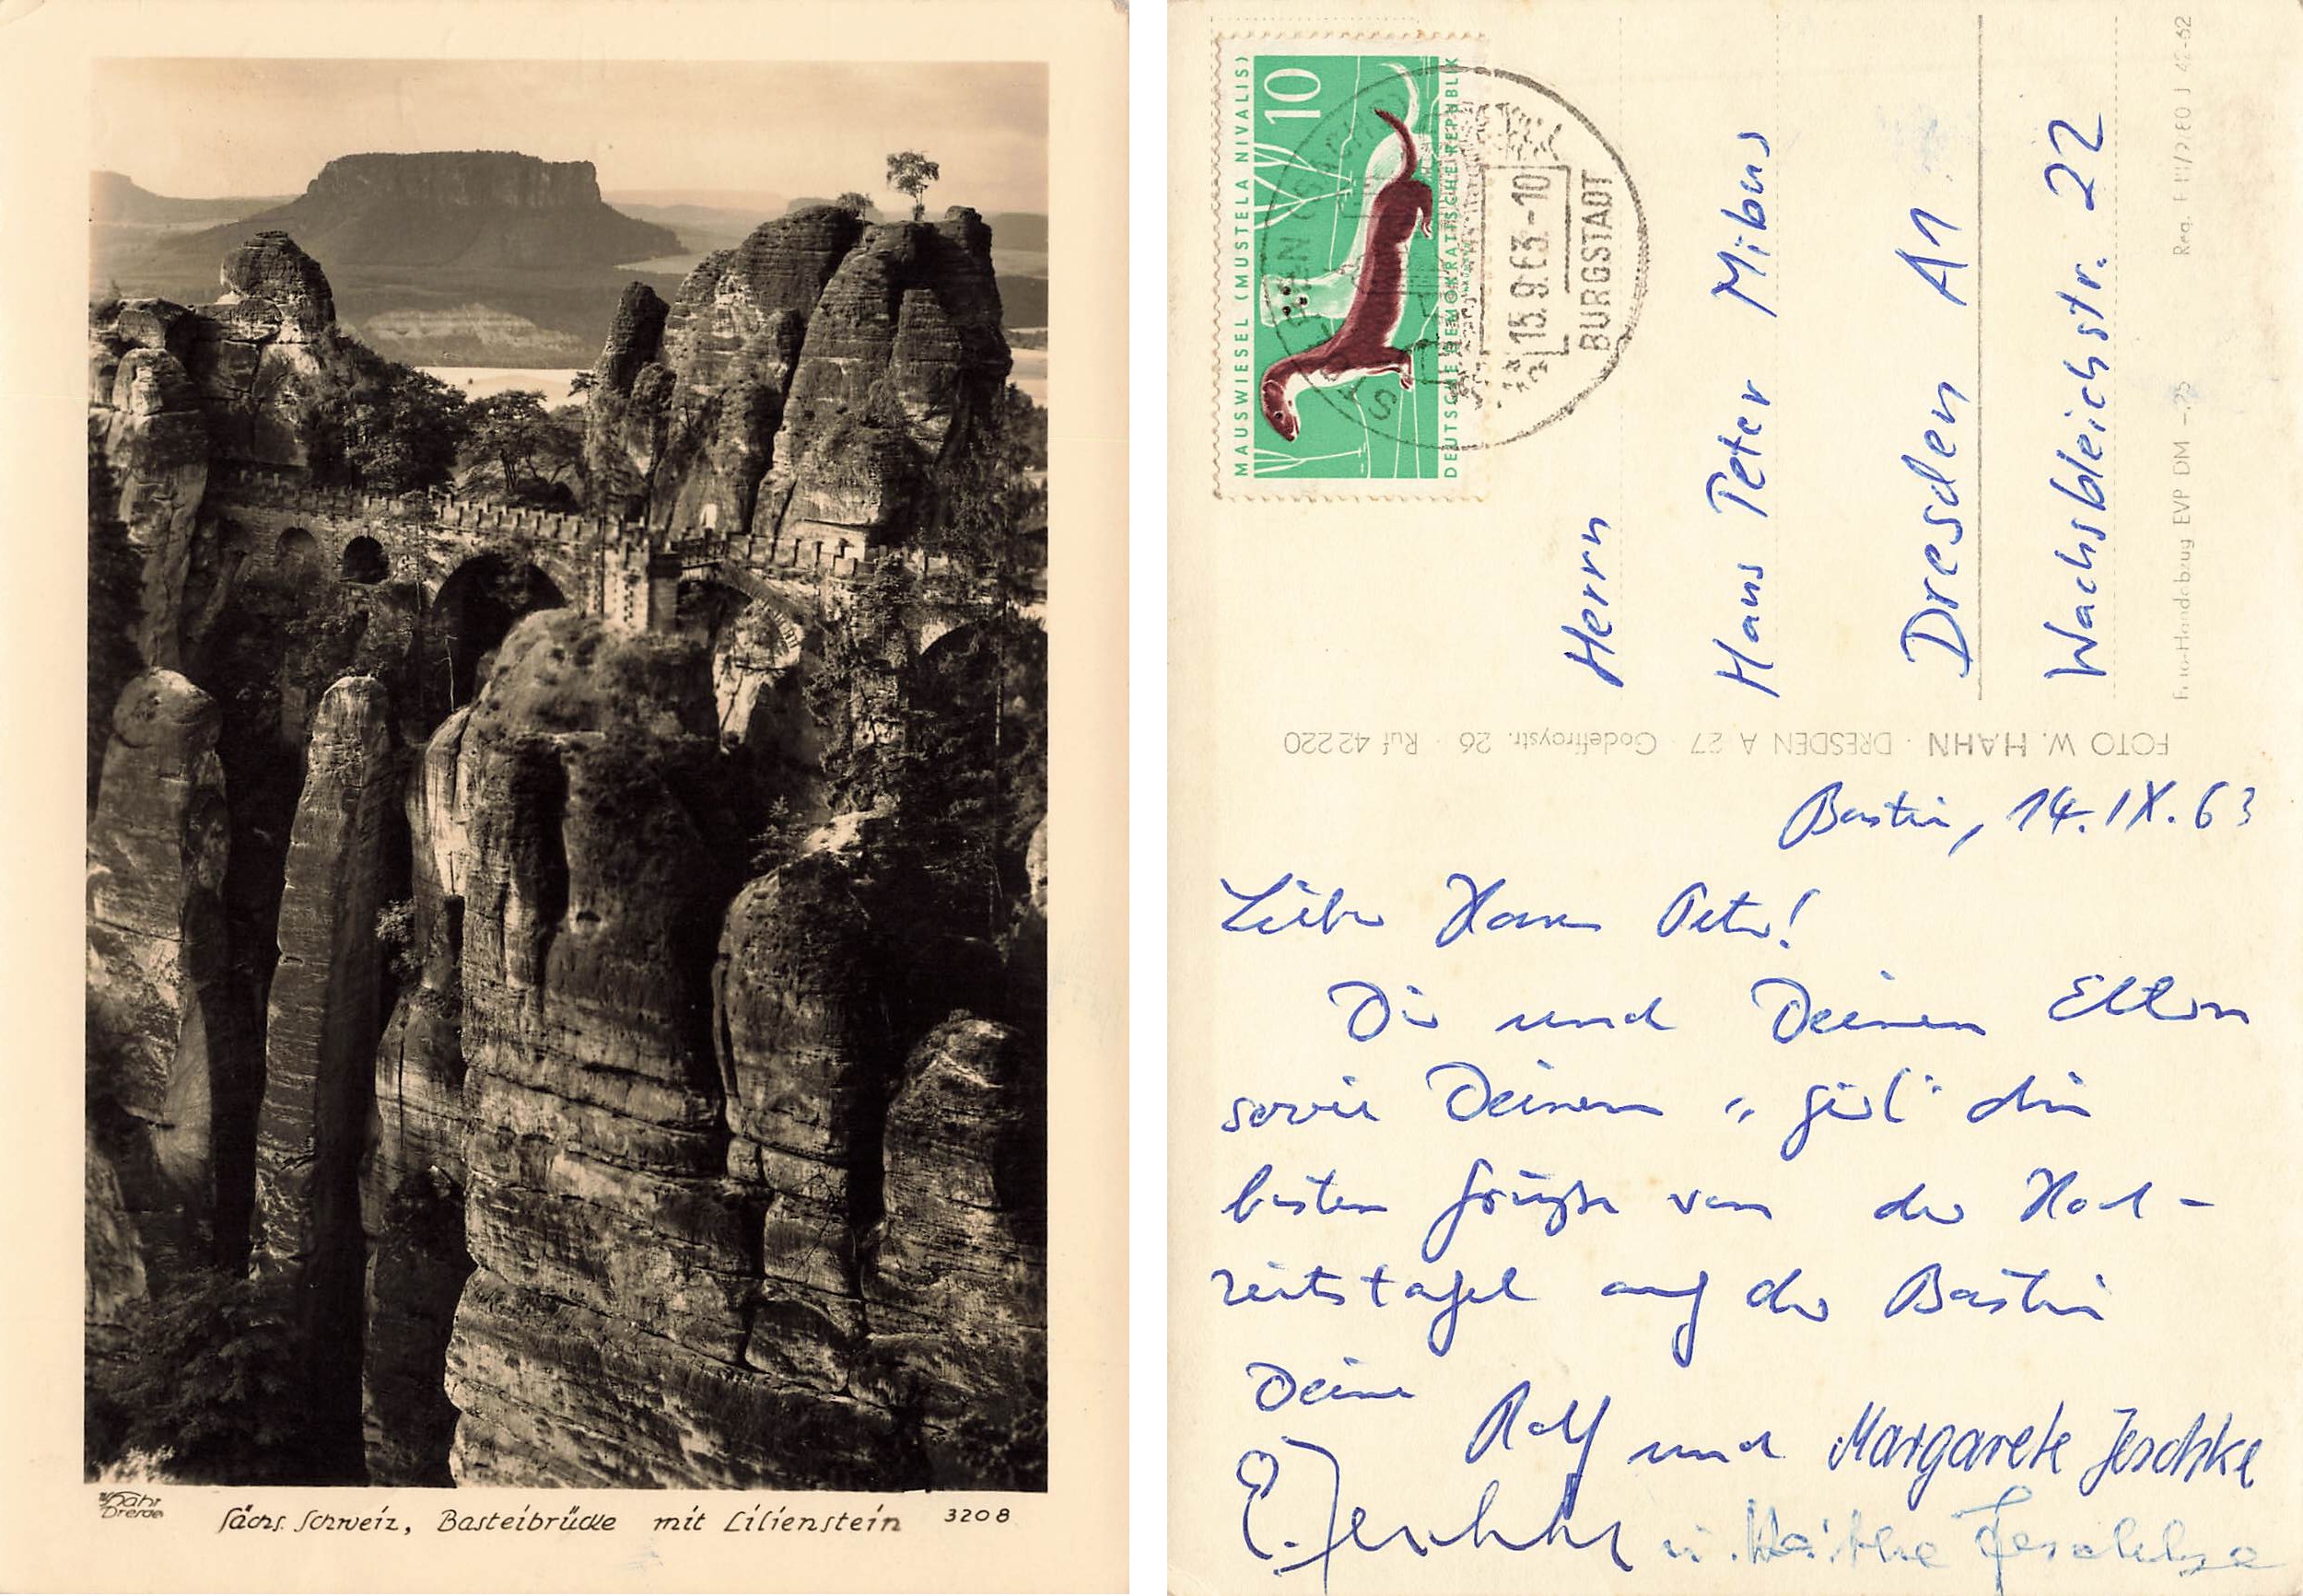 W. Hahn
Dresden
Sächs. Schweiz, Basteibrücke mit Lilienstein 3208
MAUSWIESEL (MUSTELA NIVALIS)
10
DEUTSCHE DEMOKRATISCHE REPUBLIK
15.9.63.-10
BURGSTADT
Herrn
Hans Peter Mibus
Dresden A1
Wachsbleichstr. 22
Foto-Handabzug EVP DM -.25
FOTO W. HAHN · DRESDEN A 27 · Godeffroystr. 26 · Ruf 42220
Bastei, 14.IX.63
Lieber Hans Peter!
Dir und Deinen Eltern
sowie Deinem „girl" die
besten Grüße von der Hoch-
zeitstafel auf der Bastei
Deine
Rolf und Margarete Jeschke
E. Jeschke u. Käthe Jeschke